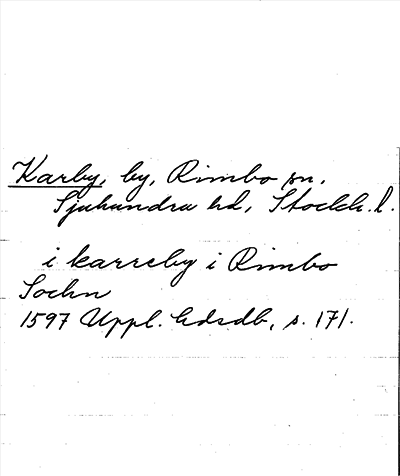 Karby, by, Rimbo sn,
Sjuhundra hd, Stockh. l.
i karreby i Rimbo
Sochn
1597 Uppl. hdsdb, s. 171.